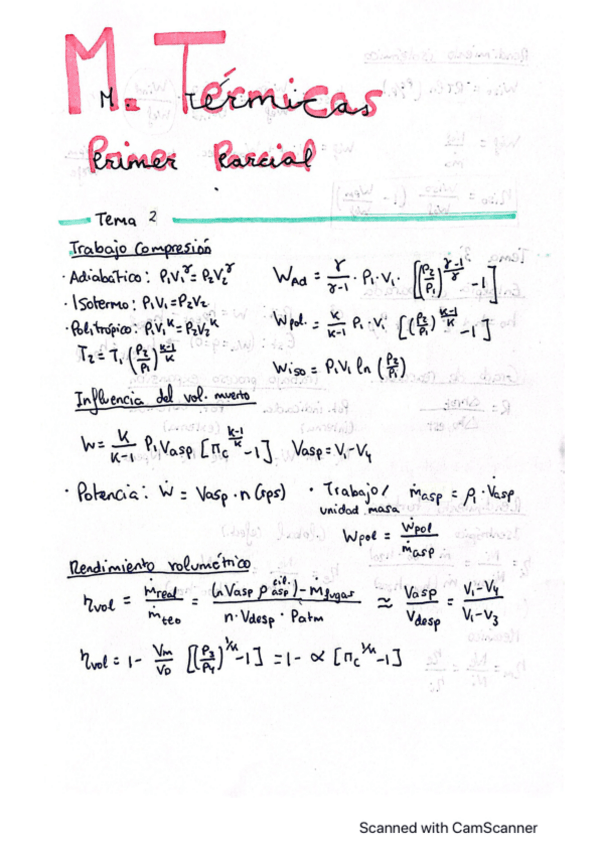 M. Térmicas
Primer Parcial
Tema 2
Trabajo Compresión
· Adiabático: P₁V₁^γ = P₂V₂^γ
W_Ad = γ/(γ-1) · P₁·V₁· [(P₂/P₁)^((γ-1)/γ) -1]
· Isotermo: P₁V₁ = P₂V₂
· Politrópico: P₁V₁^K = P₂V₂^K
W_pol. = K/(K-1) P₁·V₁ [(P₂/P₁)^((K-1)/K) -1]
T₂ = T₁ (P₂/P₁)^((K-1)/K)
W_iso = P₁V₁ ln (P₂/P₁)
Influencia del vol. muerto
W = K/(K-1) P₁ V_asp [π_c^((K-1)/K) -1] V_asp = V₁-V₄
· Potencia: Ẇ = V_asp · n (rps)
· Trabajo/
unidad masa
ṁ_asp = ρ₁ · V̇_asp
W_pol = Ẇ_pol/ṁ_asp
Rendimiento volumétrico
η_vol = ṁ_real/ṁ_teo = ((n V_asp ρ_asp^cil.) - ṁ_fugas)/(n · V_desp · P_atm) ≈ V_asp/V_desp = (V₁-V₄)/(V₁-V₃)
η_vol = 1 - V_m/V_D [(P₃/P₄)^(1/K) -1] = 1- α [π_c^(1/K) -1]
Scanned with CamScanner